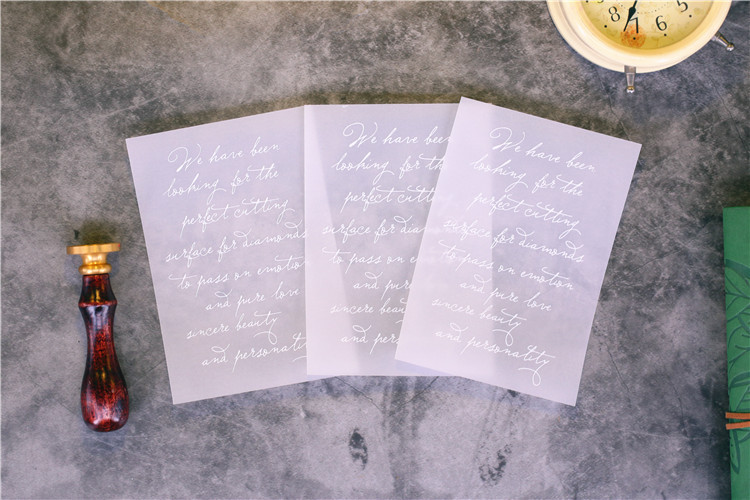 We have been
looking for the
perfect cutting
surface for diamonds
to pass on emotion
and pure love
sincere beauty
and personality
We have been
looking for the
perfect cutting
surface for
to pass on e
and pure
sincere beauty
and pers
We have been
looking for the
perfect cutting
surface for diamonds
to pass on emotion
and pure love
sincere beauty
and personality
8
7
6
5
4